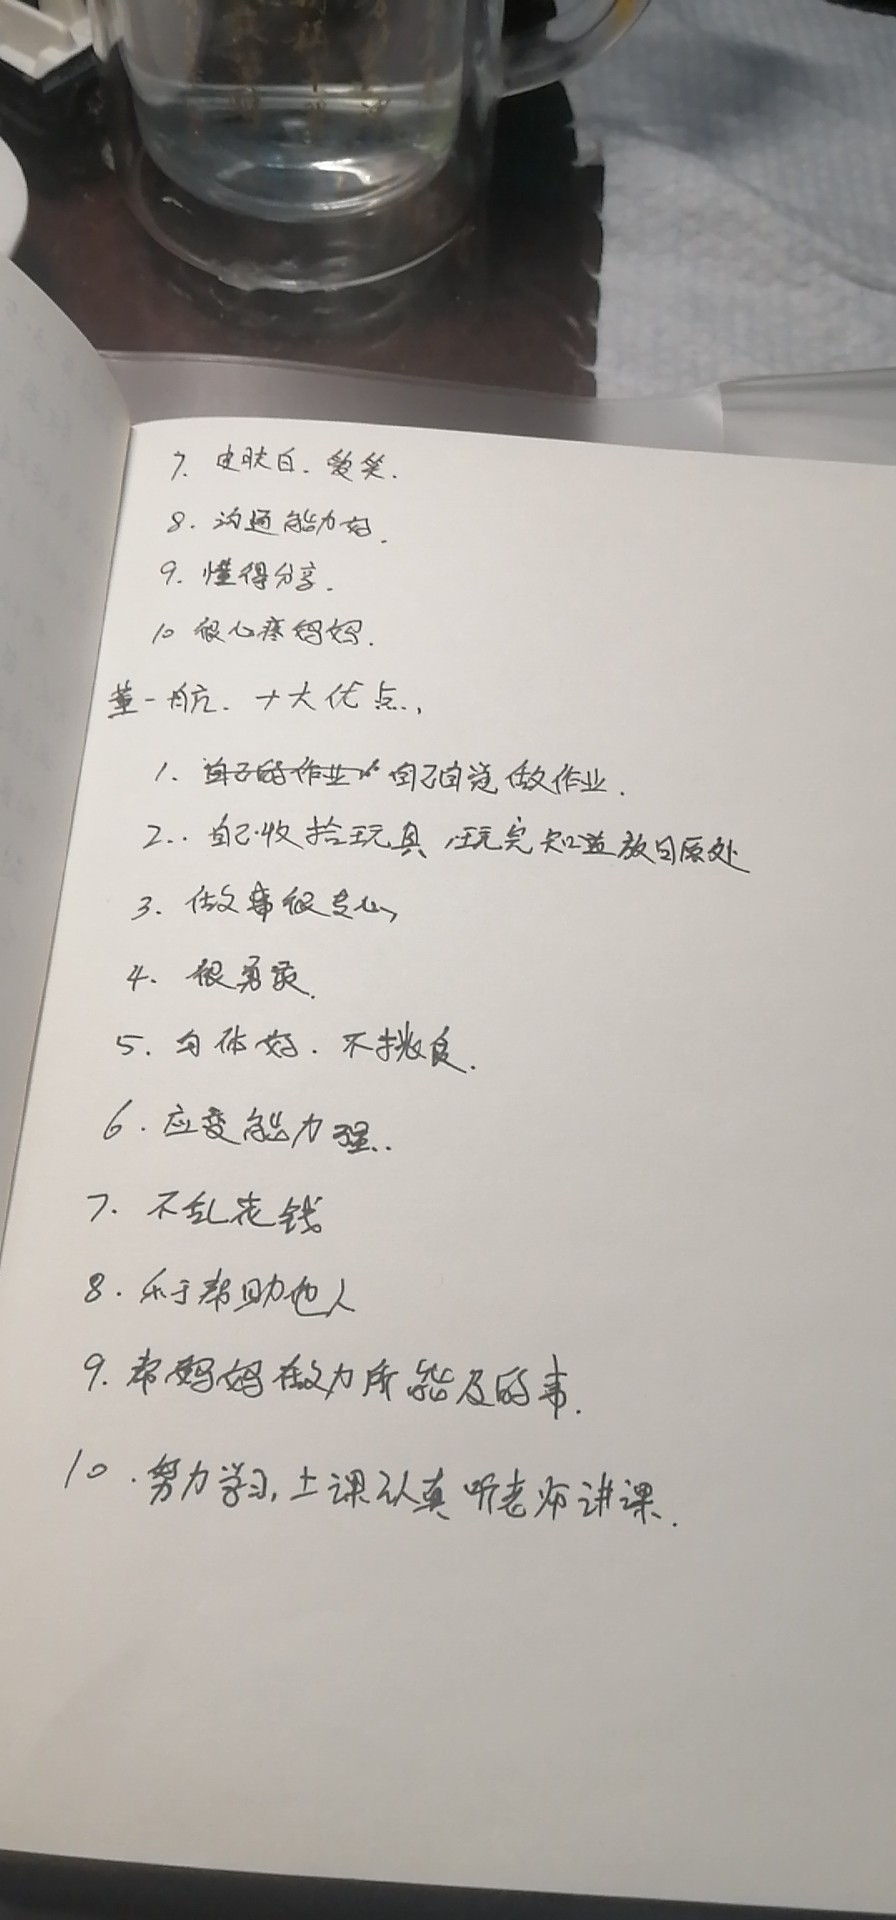 7. 皮肤白. 爱笑.
8. 沟通能力好.
9. 懂得分享.
10 很心疼妈妈.
董一航. 十大优点.,
1. 自己的作业 自己自觉做作业.
2.. 自己收拾玩具,玩完知道放回原处
3. 做事很专心,
4. 很勇敢.
5. 身体好. 不挑食.
6. 应变能力强..
7. 不乱花钱
8. 乐于帮助他人
9. 帮妈妈做力所能及的事.
10. 努力学习, 上课认真听老师讲课.